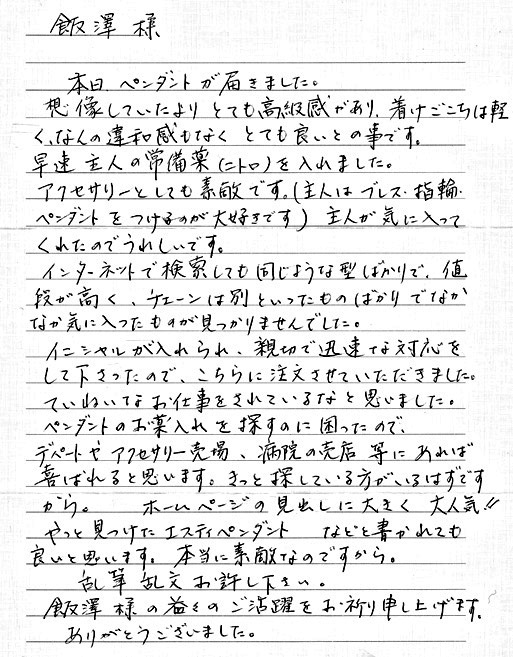 飯澤 様
本日 ペンダントが届きました。
想像していたより とても高級感があり、着けごこちは軽
く、なんの違和感もなく とても良いとの事です。
早速 主人の常備薬(ニトロ)を入れました。
アクセサリーとしても素敵です。(主人は ブレス・指輪・
ペンダントをつけるのが大好きです) 主人が気に入って
くれたのでうれしいです。
インターネットで検索しても同じような型ばかりで、値
段が高く、チェーンは別といったものばかりでなか
なか気に入ったものが見つかりませんでした。
イニシャルが入れられ、親切で迅速な対応を
して下さったので、こちらに注文させていただきました。
ていねいなお仕事をされているなと思いました。
ペンダントのお薬入れを探すのに困ったので、
デパートや アクセサリー売場、病院の売店 等にあれば
喜ばれると思います。きっと探している方がいるはずです
から。 ホームページの見出しに大きく 大人気!!
やっと見つけたエスティペンダント などと書かれても
良いと思います。本当に素敵なのですから。
乱筆乱文お許し下さい。
飯澤様の益々のご活躍をお祈り申し上げます。
ありがとうございました。